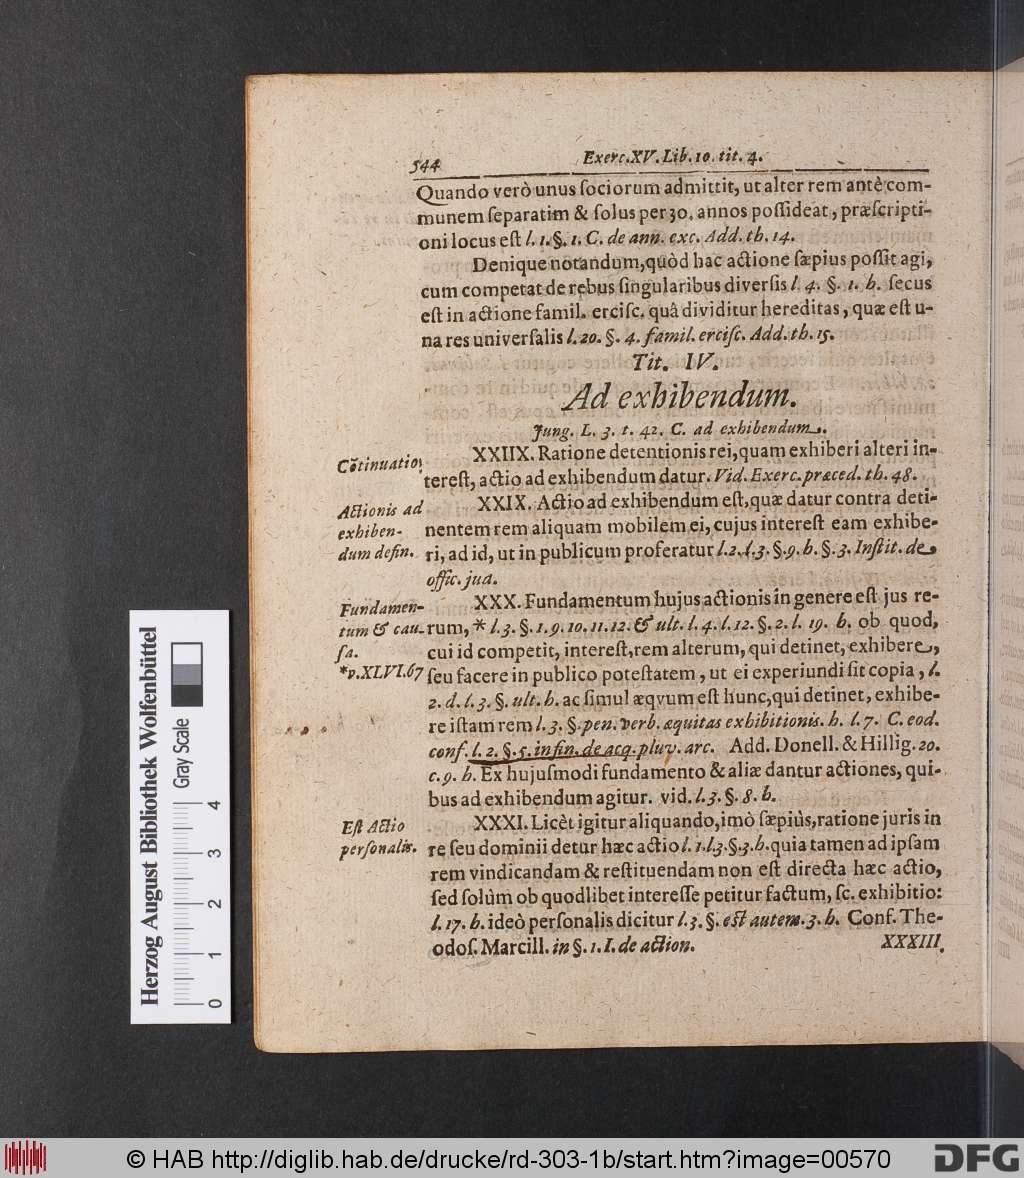 544
Exerc.XV.Lib.10.tit.4.
Quando verò unus ſociorum admittit, ut alter rem antè com-
munem ſeparatim & ſolus per 30. annos poſſideat, præſcripti-
oni locus eſt l. 1. §. 1. C. de ann. exc. Add. th. 14.
Denique notandum, quòd hac actione ſæpius poſſit agi,
cum competat de rebus ſingularibus diverſis l. 4. §. 1. h. ſecus
eſt in actione famil. erciſc. quâ dividitur hereditas, quæ eſt u-
na res univerſalis l. 20. §. 4. famil. erciſc. Add. th. 15.
Tit. IV.
Ad exhibendum.
Jung. L. 3. t. 42. C. ad exhibendum.
Cōtinuatio
XXIIX. Ratione detentionis rei, quam exhiberi alteri in-
tereſt, actio ad exhibendum datur. Vid. Exerc. præced. th. 48.
Actionis ad
exhiben-
dum defin.
XXIX. Actio ad exhibendum eſt, quæ datur contra deti-
nentem rem aliquam mobilem ei, cujus intereſt eam exhibe-
ri, ad id, ut in publicum proferatur l. 2. l. 3. §. 9. h. §. 3. Inſtit. de
offic. jud.
Fundamen-
tum & cau-
ſa.
*p. XLVI. 67
XXX. Fundamentum hujus actionis in genere eſt jus re-
rum, * l. 3. §. 1. 9. 10. 11. 12. & ult. l. 4. l. 12. §. 2. l. 19. h. ob quod,
cui id competit, intereſt, rem alterum, qui detinet, exhibere,
ſeu facere in publico poteſtatem, ut ei experiundi ſit copia, l.
2. d. l. 3. §. ult. h. ac ſimul æqvum eſt hunc, qui detinet, exhibe-
re iſtam rem l. 3. §. pen. verb. æquitas exhibitionis. h. l. 7. C. eod.
conf. l. 2. §. 5. in fin. de acq. pluv. arc. Add. Donell. & Hillig. 20.
c. 9. h. Ex hujuſmodi fundamento & aliæ dantur actiones, qui-
bus ad exhibendum agitur. vid. l. 3. §. 8. h.
Eſt Actio
perſonalis.
XXXI. Licèt igitur aliquando, imò ſæpiùs, ratione juris in
re ſeu dominii detur hæc actio l. 1. l. 3. §. 3. h. quia tamen ad ipſam
rem vindicandam & reſtituendam non eſt directa hæc actio,
ſed ſolùm ob quodlibet intereſſe petitur factum, ſc. exhibitio:
l. 17. h. ideò perſonalis dicitur l. 3. §. eſt autem. 3. h. Conf. The-
odoſ. Marcill. in §. 1. I. de action.
XXXIII.
Herzog August Bibliothek Wolfenbüttel
Gray Scale
0 1 2 3 4
© HAB http://diglib.hab.de/drucke/rd-303-1b/start.htm?image=00570
DFG